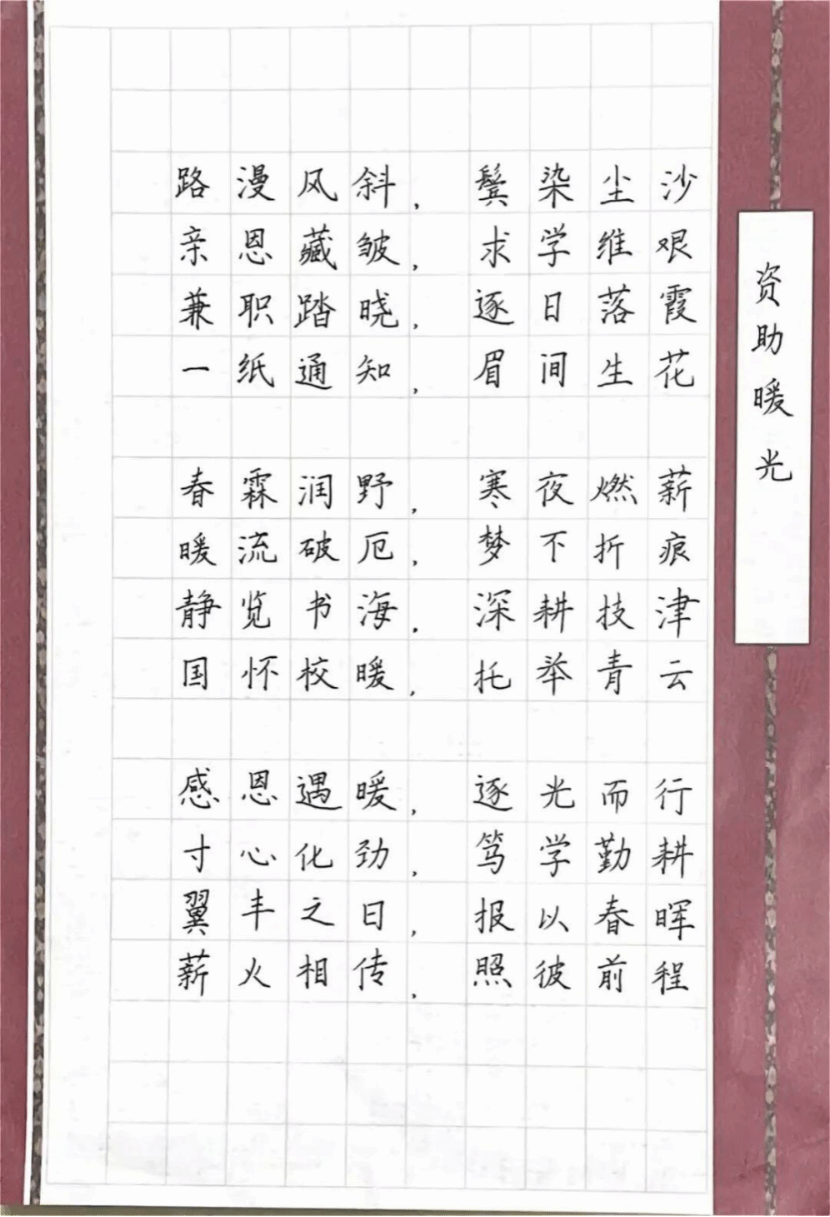 资助暖光
路漫风斜，鬓染尘沙
亲恩藏皱，求学维艰
兼职踏晓，逐日落霞
一纸通知，眉间生花
春霖润野，寒夜燃薪
暖流破厄，梦不折痕
静览书海，深耕技津
国怀校暖，托举青云
感恩遇暖，逐光而行
寸心化劲，笃学勤耕
翼丰之日，报以春晖
薪火相传，照彼前程